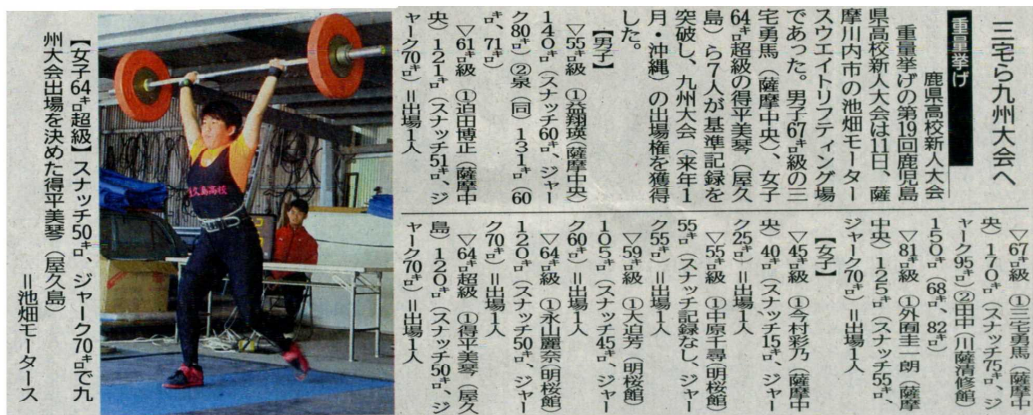 三宅ら九州大会へ
鹿県高校新人大会
重量挙げ
重量挙げの第19回鹿児島
県高校新人大会は11日、薩
摩川内市の池畑モーター
スウエイトリフティング場
であった。男子67㌔級の三
宅勇馬（薩摩中央）、女子
64㌔超級の得平美琴（屋久
島）ら7人が基準記録を
突破し、九州大会（来年1
月・沖縄）の出場権を獲得
した。
【男子】
▽55㌔級 ①益翔瑛（薩摩中央）
140㌔（スナッチ60㌔、ジャー
ク80㌔）②泉（同）131㌔（60
㌔、71㌔）
▽61㌔級 ①迫田博正（薩摩中
央）121㌔（スナッチ51㌔、ジ
ャーク70㌔）＝出場1人
▽67㌔級 ①三宅勇馬（薩摩中
央）170㌔（スナッチ75㌔、ジ
ャーク95㌔）②田中（川薩清修館）
150㌔（68㌔、82㌔）
▽81㌔級 ①外囿圭一朗（薩摩
中央）125㌔（スナッチ55㌔、
ジャーク70㌔）＝出場1人
【女子】
▽45㌔級 ①今村彩乃（薩摩中
央）40㌔（スナッチ15㌔、ジャー
ク25㌔）＝出場1人
▽55㌔級 ①中原千尋（明桜館）
55㌔（スナッチ記録なし、ジャー
ク55㌔）＝出場1人
▽59㌔級 ①大迫芳（明桜館）
105㌔（スナッチ45㌔、ジャー
ク60㌔）＝出場1人
▽64㌔級 ①永山麗奈（明桜館）
120㌔（スナッチ50㌔、ジャー
ク70㌔）＝出場1人
▽64㌔超級 ①得平美琴（屋久
島）120㌔（スナッチ50㌔、ジ
ャーク70㌔）＝出場1人
【女子64㌔超級】スナッチ50㌔、ジャーク70㌔で九
州大会出場を決めた得平美琴（屋久島）
＝池畑モータース
屋久島高校